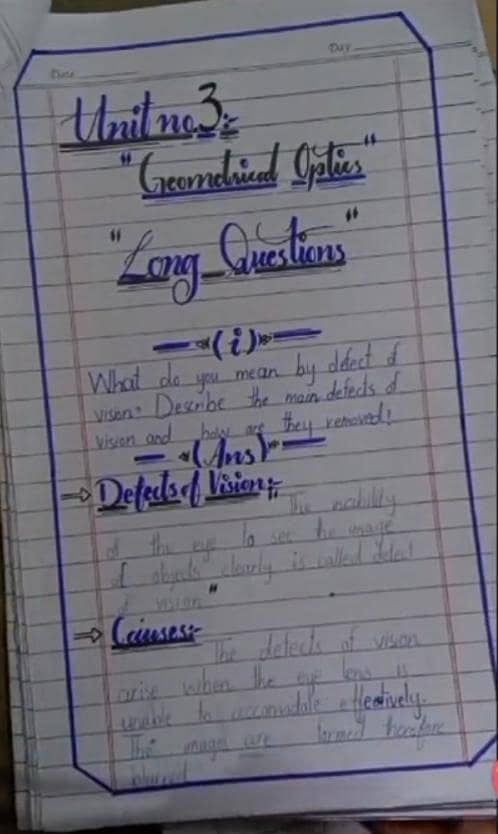 Date
Day
Unit no.3:-
"Geometrical Optics"
"Long Questions"
(i)
What do you mean by defect of
vison? Describe the main defects of
vision and how are they removed!
(Ans)
⇒ Defects of Vision:- The inability
of the eye to see the image
of objects clearly is called defect
of vision"
⇒ Causes:-
The defects of vision
arise when the eye lens is
unable to accomodate effectively.
The images are formed therefore
blurred